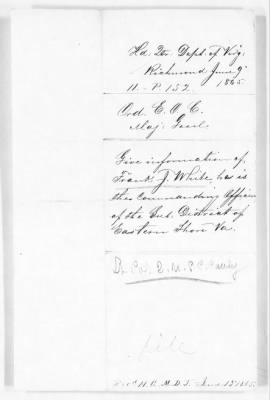 Hd. Qrs. Dept. of Va.
Richmond June 9"
1865
Ord, E. O. C.
Maj. Genl.
Give information of
Frank J. White has is
the Commanding Officer
of the Sub. District of
Eastern Shore Va.
file
June 13 1865